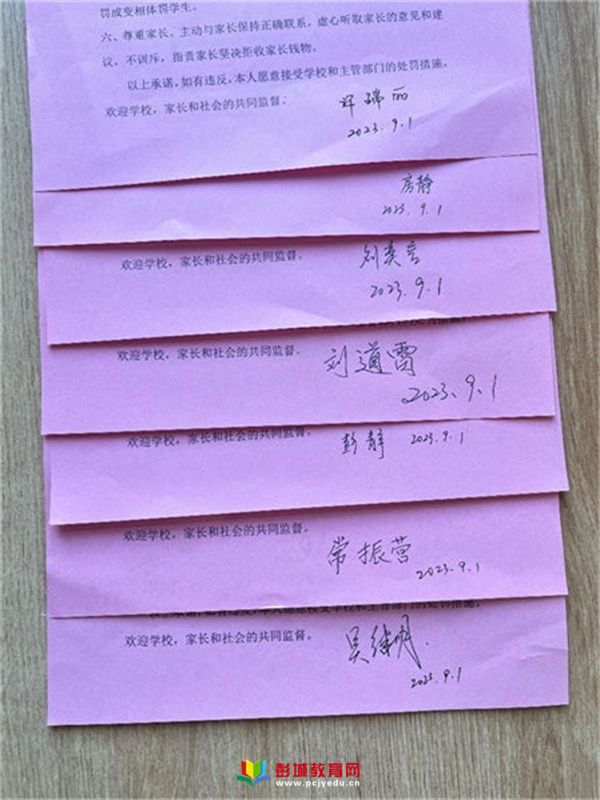 罚或变相体罚学生。
六、尊重家长、主动与家长保持正确联系，虚心听取家长的意见和建
议，不训斥，指责家长坚决拒收家长钱物。
以上承诺，如有违反，本人愿意接受学校和主管部门的处罚措施，
欢迎学校，家长和社会的共同监督。
许瑞丽
2023.9.1
房静
2023.9.1
欢迎学校，家长和社会的共同监督。
2023.9.1
欢迎学校，家长和社会的共同监督。
刘道雷
2023.9.1
欢迎学校，家长和社会的共同监督。
彭静 2023.9.1
欢迎学校，家长和社会的共同监督。
常振营
2023.9.1
以上承诺，如有违反，本人愿意接受学校和主管部门的处罚措施，
欢迎学校，家长和社会的共同监督。
吴继明
2023.9.1
彭城教育网
www.pcjyedu.cn